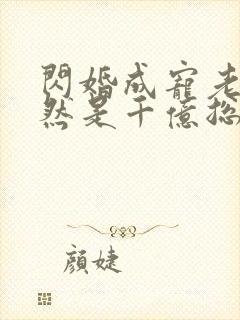 閃婚成寵老
然是千億總
顏婕